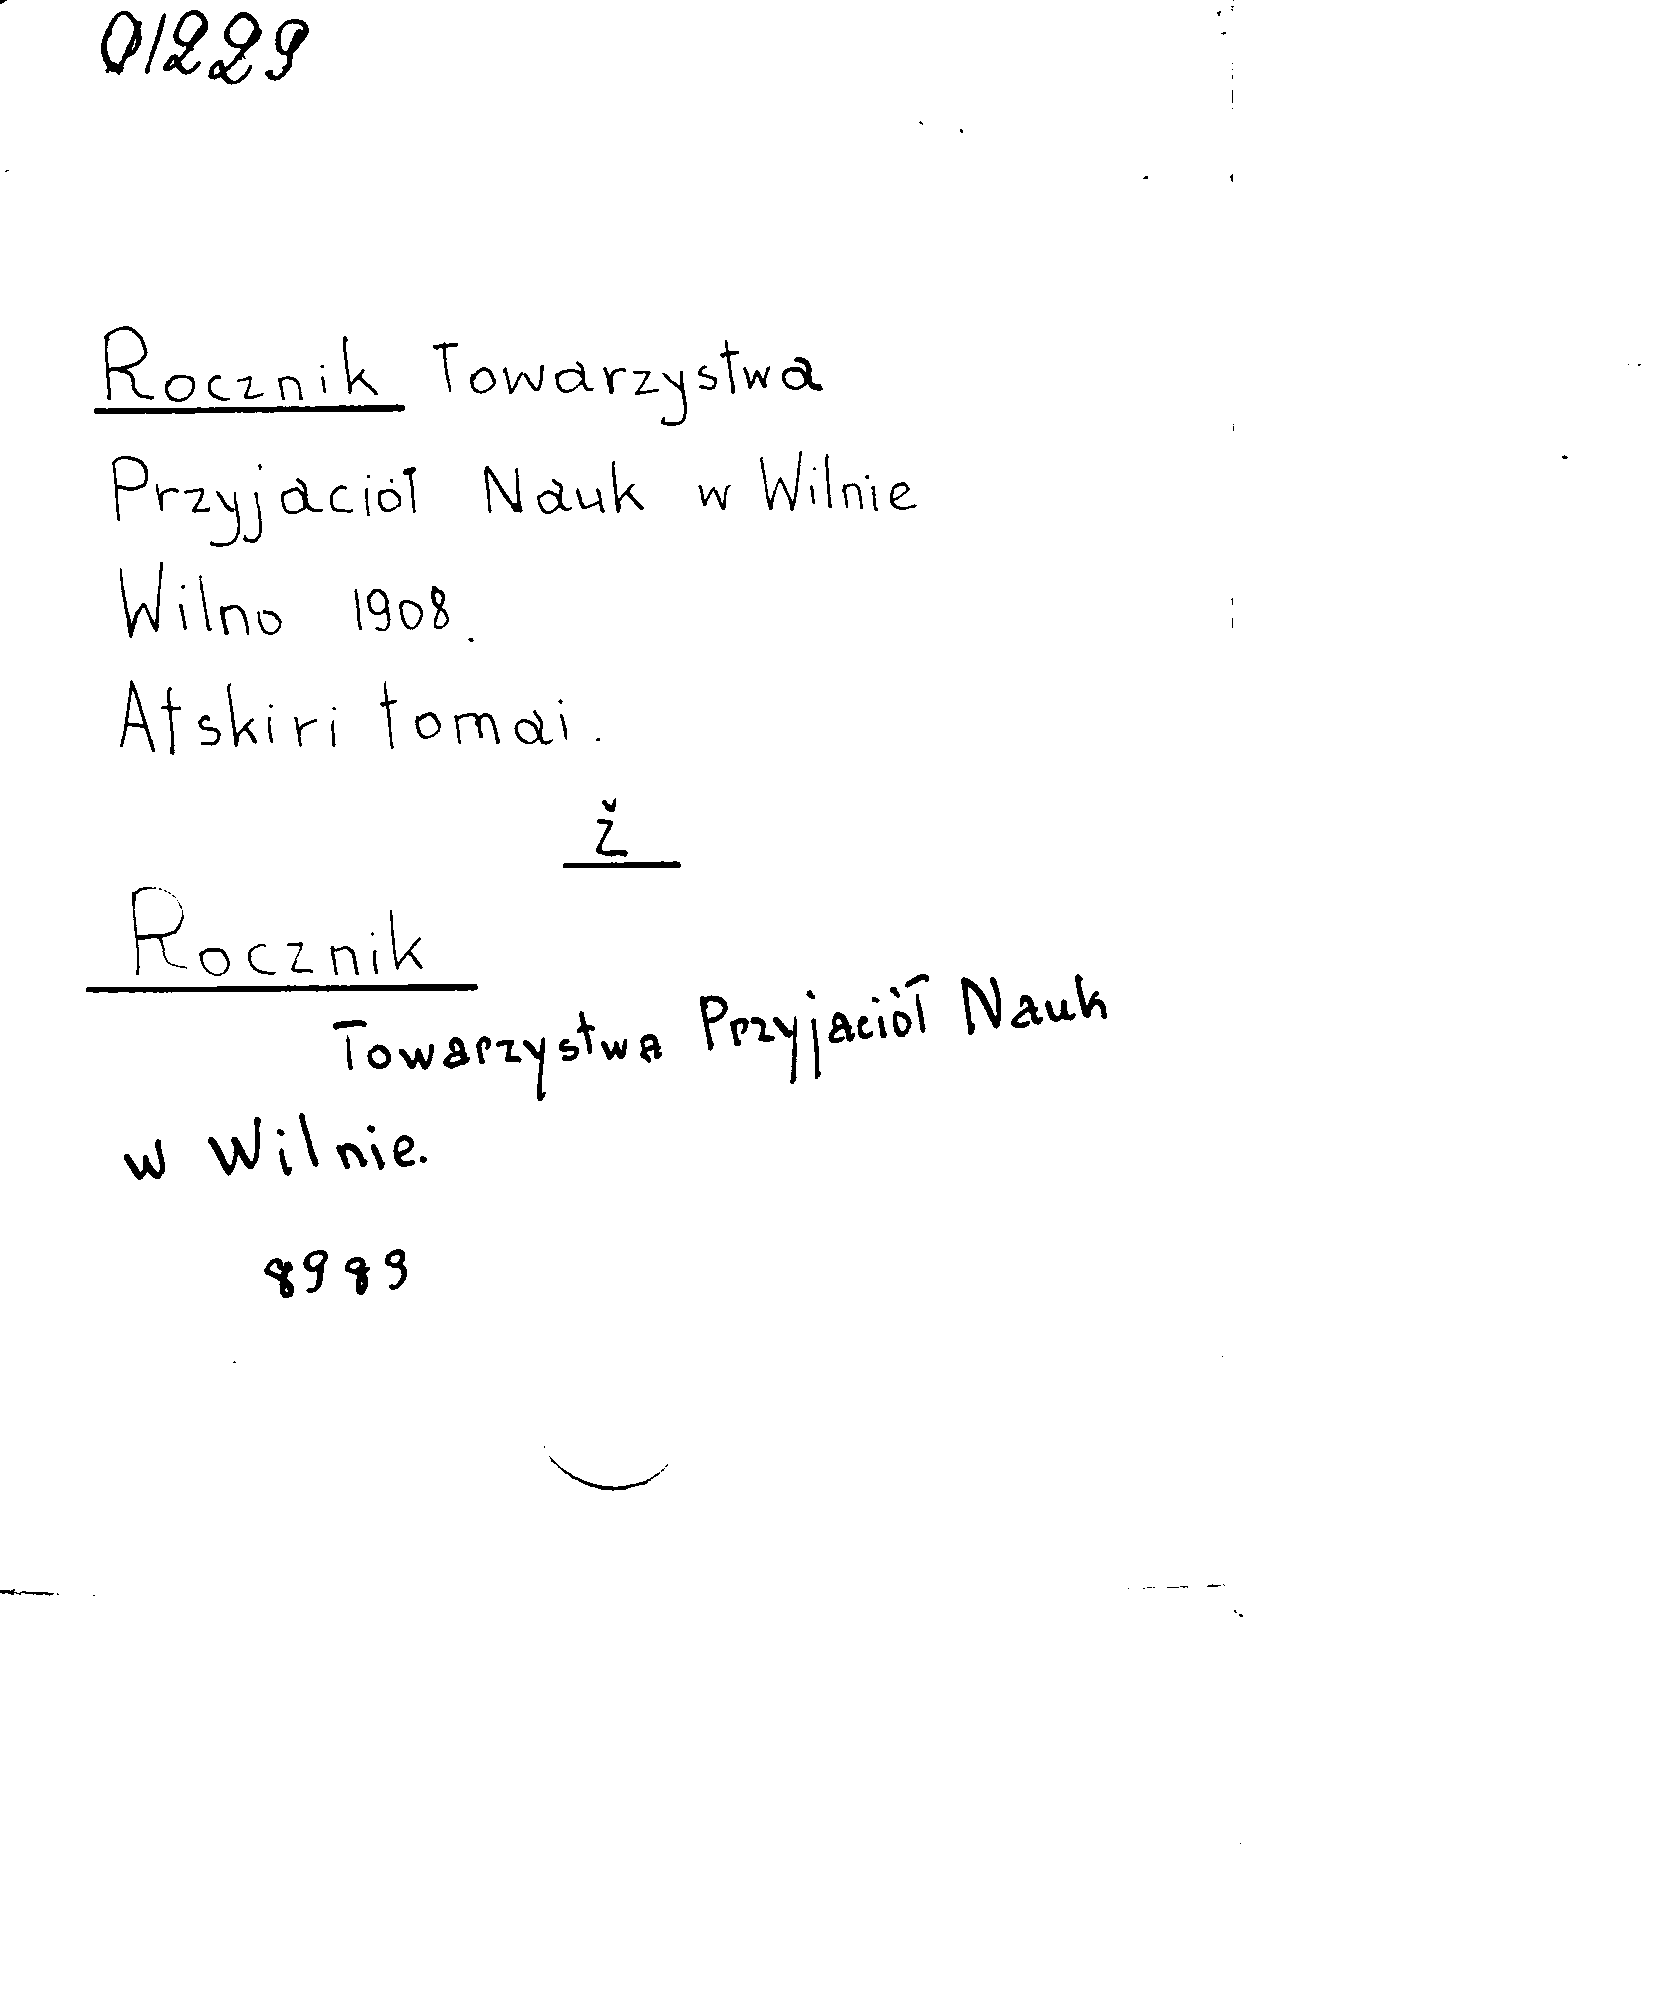 01229
Rocznik Towarzystwa
Przyjaciół Nauk w Wilnie
Wilno 1908.
Atskiri tomai.
ž
Rocznik
Towarzystwa Przyjaciół Nauk
w Wilnie.
8989